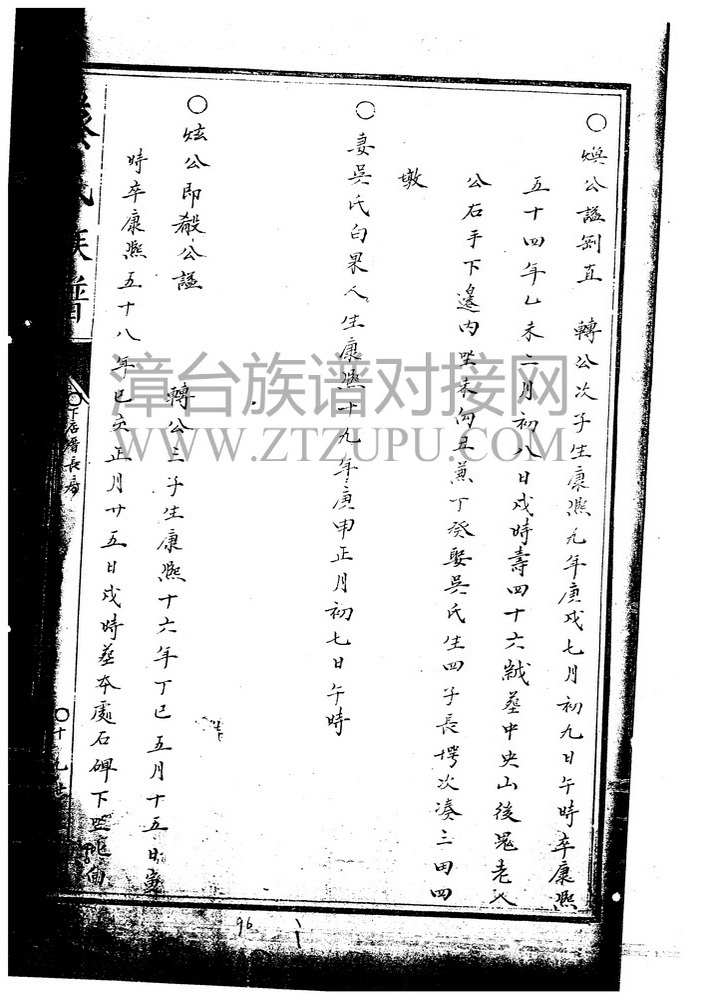 ○煥公謚剛直 轉公次子生康熙九年庚戍七月初九日午時卒康熙
五十四年乙未二月初八日戍時壽四十六䘏塟中央山後鬼老
公右手下邊内坐未向丑兼丁癸娶吳氏生四子長愕次凑三田四
墩
○妻吳氏白果人生康熙十九年庚申正月初七日午時
○炫公即毅公謚 轉公三子生康熙十六年丁巳五月十五日寅
時卒康熙五十八年巳亥正月廿五日戍時塟本處石碑下坐
氏族譜
○下店厝長房
○十九世
96
漳台族谱对接网
WWW.ZTZUPU.COM